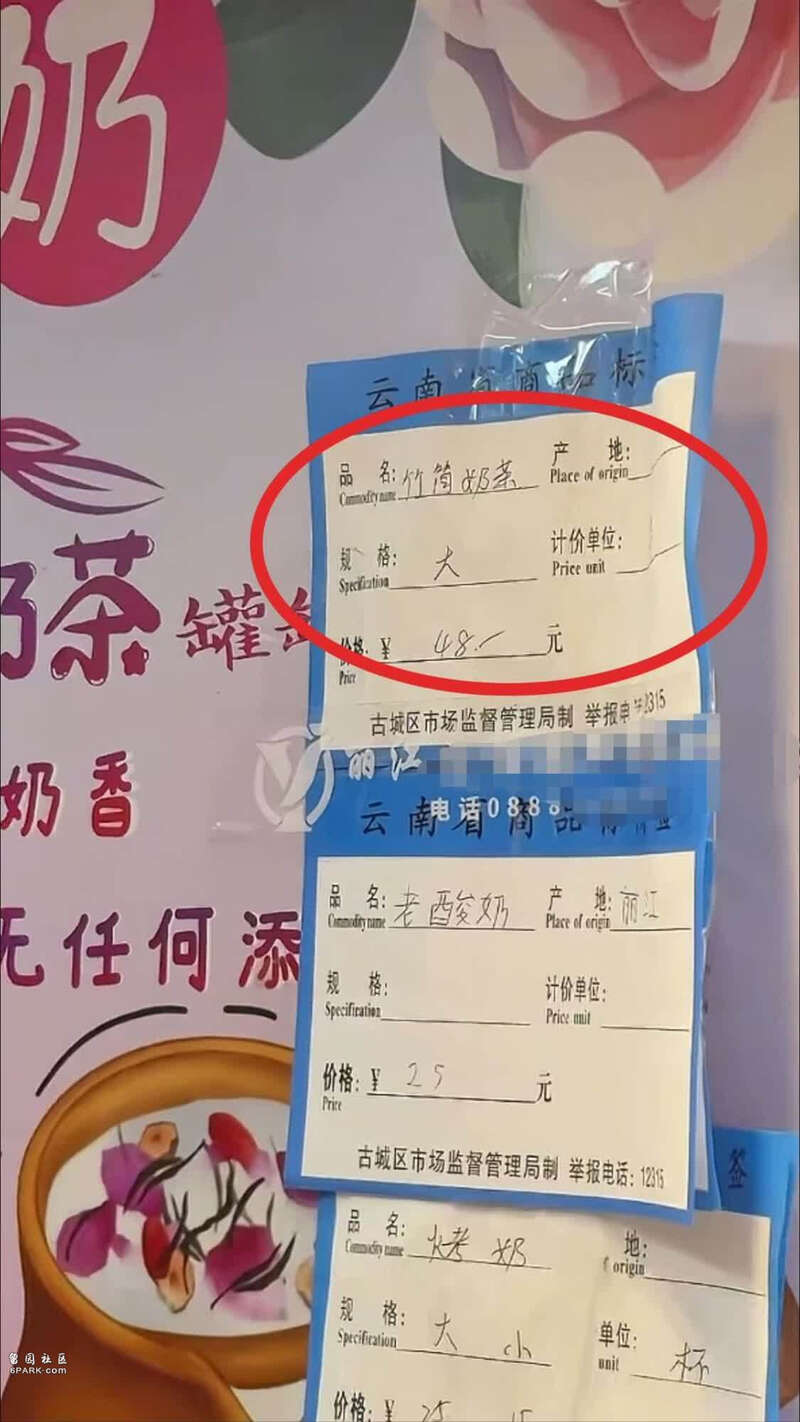 奶
云南省商品标
品名: 竹筒奶茶 产地:
Commodity name Place of origin
规格: 大 计价单位:
Specification Price unit
茶 罐
价格: ¥ 48.- 元
Price
古城区市场监督管理局制 举报电话12315
丽江
奶香
电话0888
云南省商品标价签
品名: 老酸奶 产地: 丽江
Commodity name Place of origin
无任何添
规格: 计价单位:
Specification Price unit
价格: ¥ 25 元
Price
古城区市场监督管理局制 举报电话: 12315
签
品名: 烤奶 地:
Commodity name f origin
规格: 大 小 单位: 杯
Specification unit
价格: ¥ 25 15
留园社区
6PARK.com